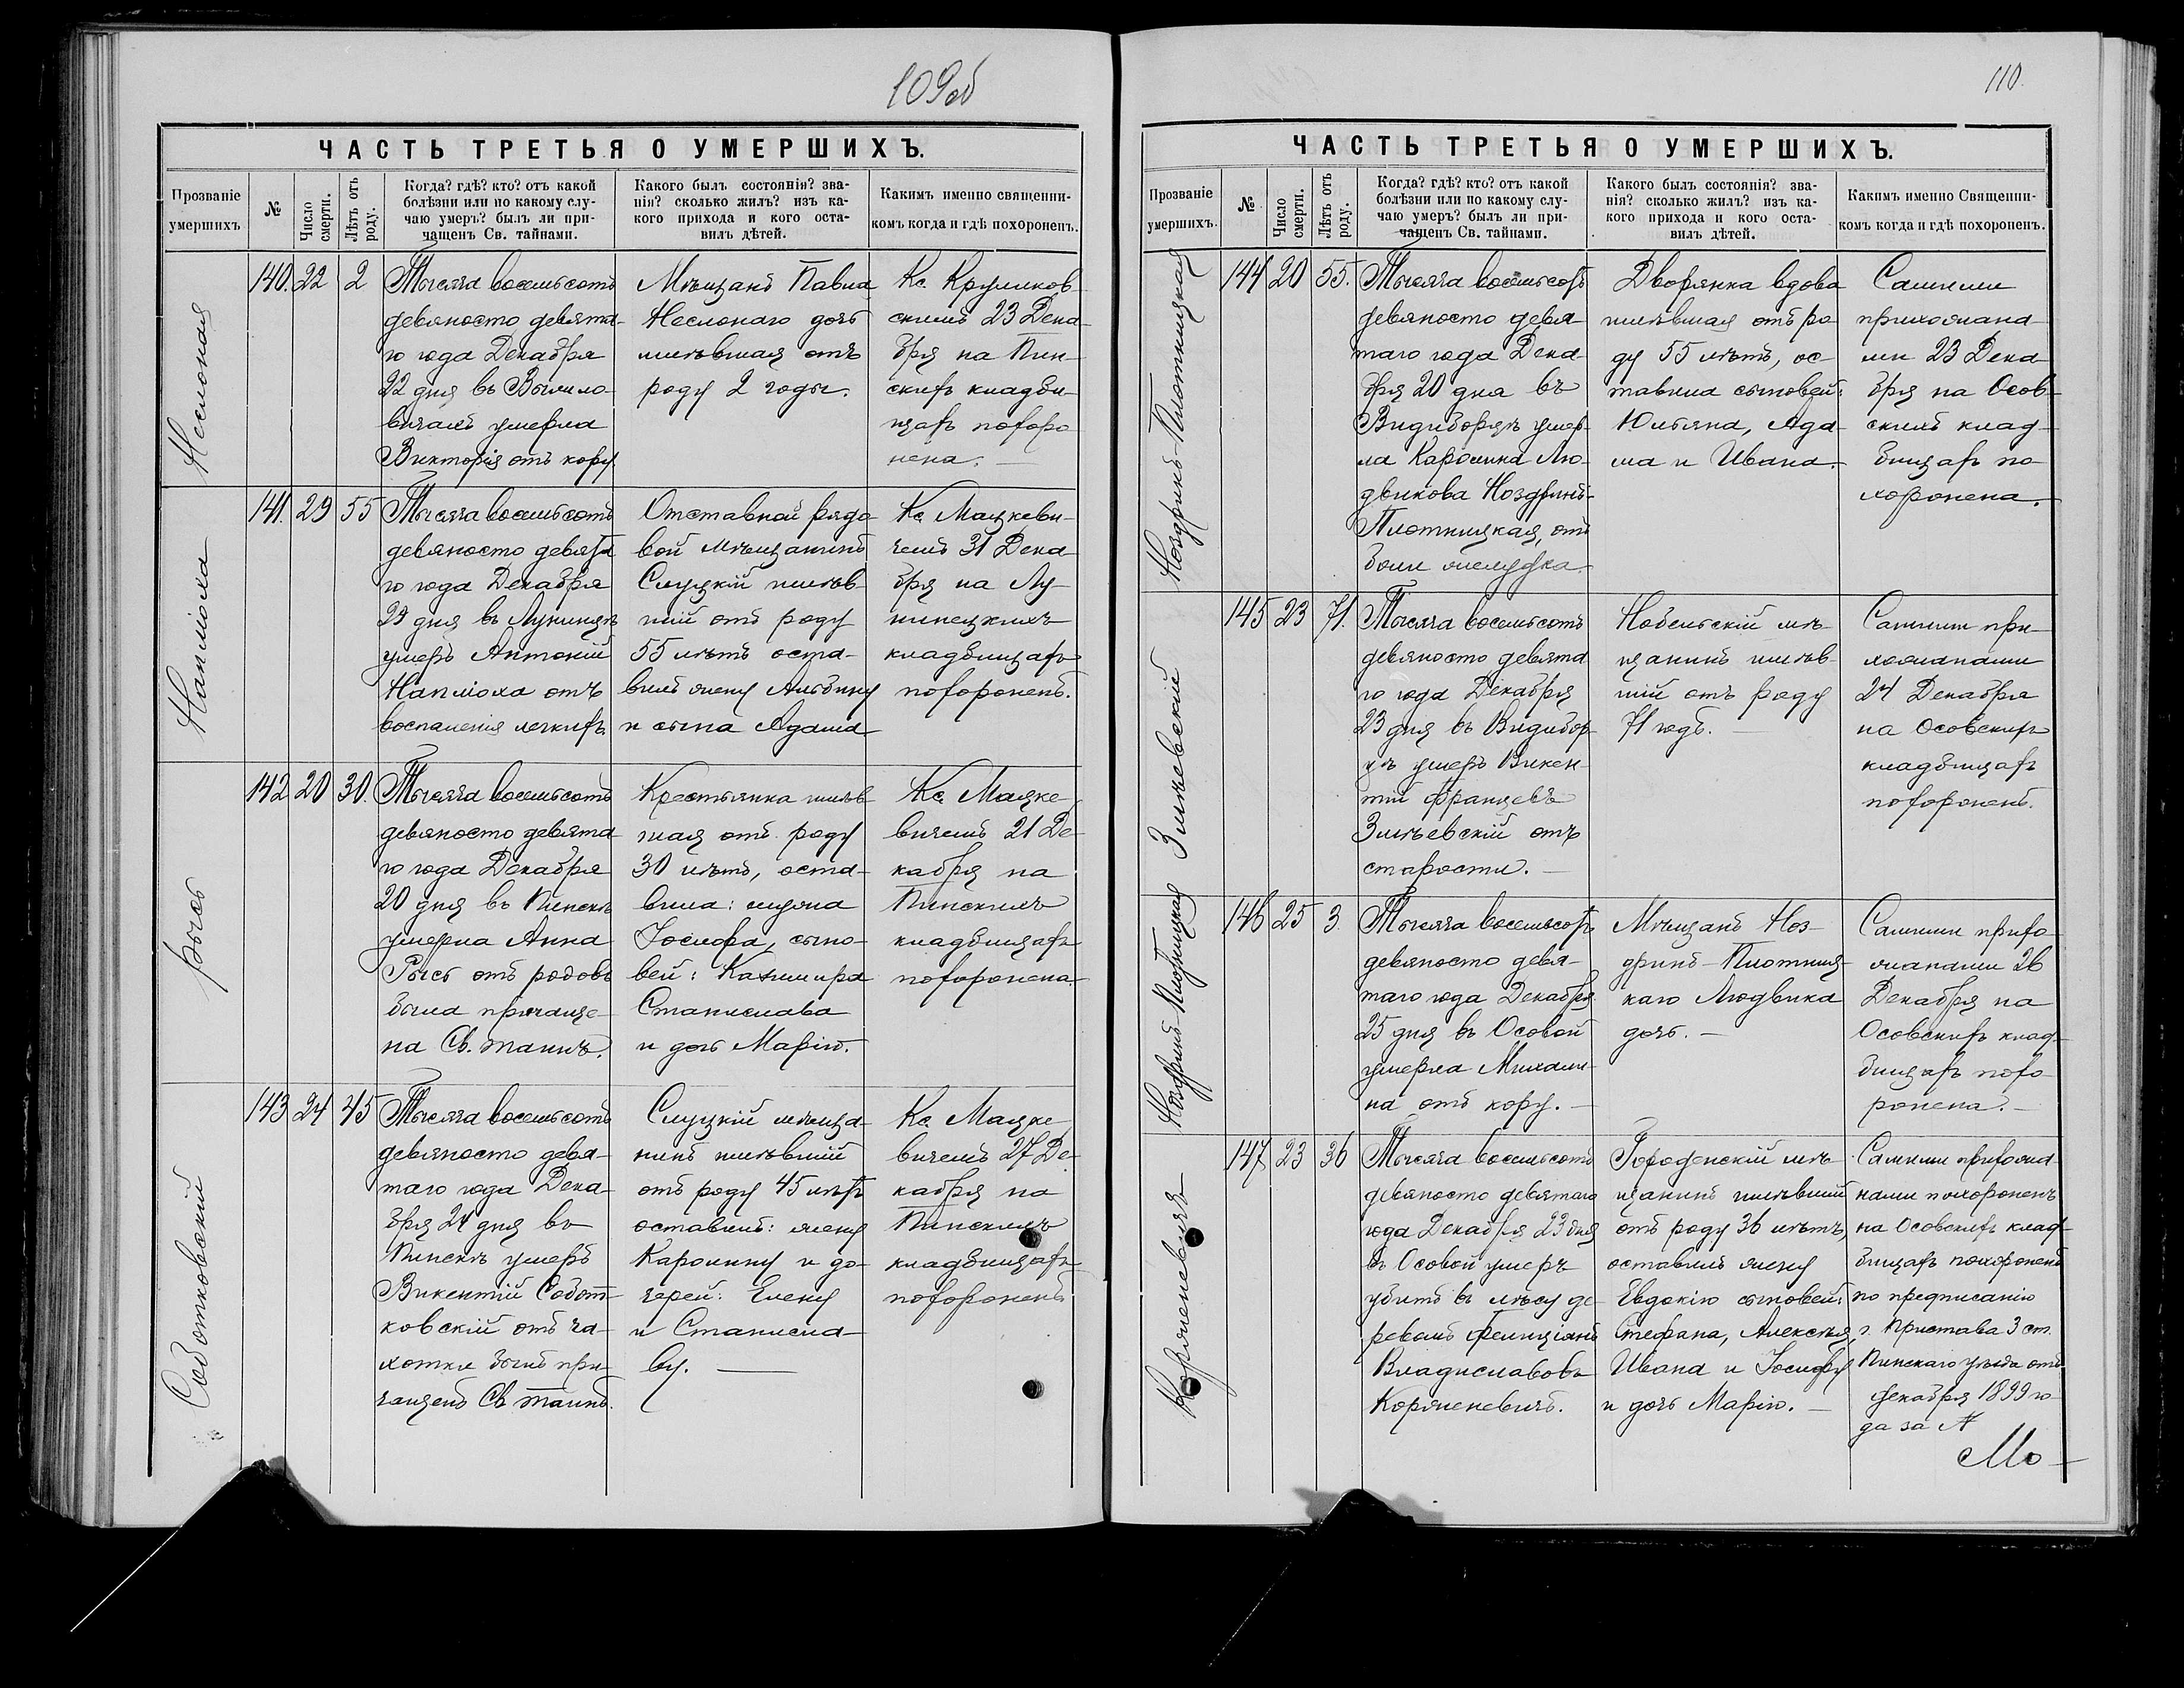 109об
ЧАСТЬ ТРЕТЬЯ О УМЕРШИХЪ.
Прозваніе
умершихъ
№
Число
смерти.
Лѣтъ отъ
роду.
Когда? гдѣ? кто? отъ какой
болѣзни или по какому слу-
чаю умеръ? былъ ли при-
чащенъ Св. тайнами.
Какого былъ состоянія? зва-
нія? сколько жилъ? изъ ка-
кого прихода и кого оста-
вилъ дѣтей.
Какимъ именно священни-
комъ когда и гдѣ похороненъ.
140. 22 2
Тысяча восемьсотъ
девяносто девята-
го года Декабря
22 дня въ
умерла
Викторія отъ кору
Мѣщанъ Павла
дочь
имѣвшая отъ
роду 2 годы.
Кс.
23 Дека-
бря на Пин-
скихъ кладби-
щахъ похоро
нена. —
141. 29 55
Тысяча восемьсотъ
девяносто девята
го года Декабря
29 дня въ Лунинцѣ
умеръ Антоній
отъ
воспаленія легкихъ
Отставной рядо
вой мѣщанинъ
Слуцкій имѣв-
шій отъ роду
55 лѣтъ оста-
вилъ жену Альбину
и сына Адама
Кс. Мацкеви-
чемъ 31 Дека
бря на Лу-
нинецкихъ
кладбищахъ
похороненъ.
Рысь
142 20 30.
Тысяча восемьсотъ
девяносто девята
го года Декабря
20 дня въ Пинскѣ
умерла Анна
Рысь отъ родовъ
была причаще-
на Св. таинъ.
Крестьянка имѣв
шая отъ роду
30 лѣтъ, оста-
вила: мужа
Іосифа, сыно-
вей: Казимира
Станислава
и дочь Марію.
Кс. Мацке
вичемъ 21 Де-
кабря на
Пинскихъ
кладбищахъ
похоронена
Соботковскій
143 24 45
Тысяча восемьсотъ
девяносто девя-
таго года Дека-
бря 24 дня въ
Пинскѣ умеръ
Викентій Собот-
ковскій отъ ча-
хотки былъ при-
чащенъ Св таинъ.
Слуцкій мѣща-
нинъ имѣвшій
отъ роду 45 лѣтъ
оставилъ: жену
Каролину и до-
черей: Елену
и Станисла-
ву. —
Кс. Мацке
вичемъ 27 Де-
кабря на
Пинскихъ
кладбищахъ
похороненъ
110.
ЧАСТЬ ТРЕТЬЯ О УМЕРШИХЪ.
Прозваніе
умершихъ.
№
Число
смерти.
Лѣтъ отъ
роду.
Когда? гдѣ? кто? отъ какой
болѣзни или по какому слу-
чаю умеръ? былъ ли при-
чащенъ Св. тайнами.
Какого былъ состоянія? зва-
нія? сколько жилъ? изъ ка-
кого прихода и кого оста-
вилъ дѣтей.
Какимъ именно Священни-
комъ когда и гдѣ похороненъ.
Ноздринъ-Плотницкая
144 20 55.
Тысяча восемьсотъ
девяносто девя-
таго года Дека-
бря 20 дня въ
Видиборцѣ умер-
ла Каролина Лю-
двикова Ноздринъ-
Плотницкая, отъ
боли желудка
Дворянка вдова
имѣвшая отъ ро
ду 55 лѣтъ, ос-
тавила сыновей:
Юльяна, Ада-
ма и Ивана.
Самими
прихожана-
ми 23 Дека
бря на Осов-
скихъ клад-
бищахъ по-
хоронена.
Змѣевскій
145 23 71.
Тысяча восемьсотъ
девяносто девята
го года Декабря
23 дня въ Видибор-
цѣ умеръ Викен-
тій Францевъ
Змѣевскій отъ
старости. —
Нобельскій мѣ-
щанинъ имѣв-
шій отъ роду
71 годъ. —
Самими при-
хожанами
24 Декабря
на Осовскихъ
кладбищахъ
похороненъ.
Ноздринъ-Плотницкая
146 25 3.
Тысяча восемьсотъ
девяносто девя-
таго года Декабря
25 дня въ Осовой
умерла Михали-
на отъ кору. —
Мѣщанъ Ноз-
дринъ-Плотниц-
каго Людвика
дочь. —
Самими прихо-
жанами 26
Декабря на
Осовскихъ клад-
бищахъ похо-
ронена. —
Корженевичъ
147 23 36
Тысяча восемьсотъ
девяносто девятаго
года Декабря 23 дня
въ Осовой умеръ
убитъ въ лѣсу де-
ревомъ Фелиціанъ
Владиславовъ
Корженевичъ.
Городенскій мѣ-
щанинъ имѣвшій
отъ роду 36 лѣтъ,
оставилъ жену
Евдокію сыновей:
Стефана, Алексѣя,
Ивана и Іосифа
и дочь Марію. —
Самими прихожа-
нами похороненъ
на Осовскихъ клад-
бищахъ похороненъ
по предписанію
г. Пристава 3 ст.
Пинскаго уѣзда отъ
декабря 1899 го-
да за №